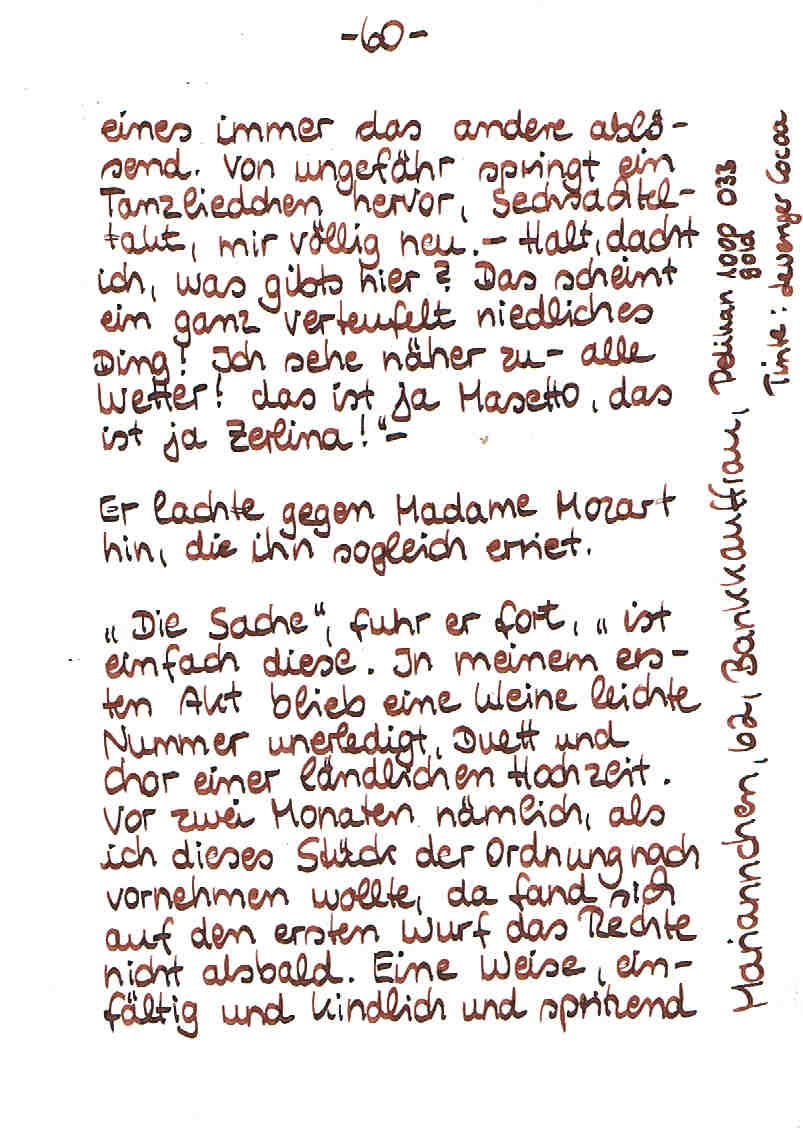 -60-
eines immer das andere ablö-
send. Von ungefähr springt ein
Tanzliedchen hervor, Sechsachtel-
takt, mir völlig neu. - Halt, dacht
ich, was gibts hier? Das scheint
ein ganz verteufelt niedliches
Ding! Ich sehe näher zu- alle
Wetter! das ist ja Masetto, das
ist ja Zerlina!"-
Er lachte gegen Madame Mozart
hin, die ihn sogleich erriet.
„Die Sache", fuhr er fort, „ist
einfach diese. In meinem ers-
ten Akt blieb eine kleine leichte
Nummer unerledigt, Duett und
Chor einer ländlichen Hochzeit.
Vor zwei Monaten nämlich, als
ich dieses Stück der Ordnung nach
vornehmen wollte, da fand sich
auf den ersten Wurf das Rechte
nicht alsbald. Eine Weise, ein-
fältig und kindlich und spritzend
Mariannchen, 62, Bankkauffrau, Pelikan 100P 033
gold
Tinte: deVenger Cocoa